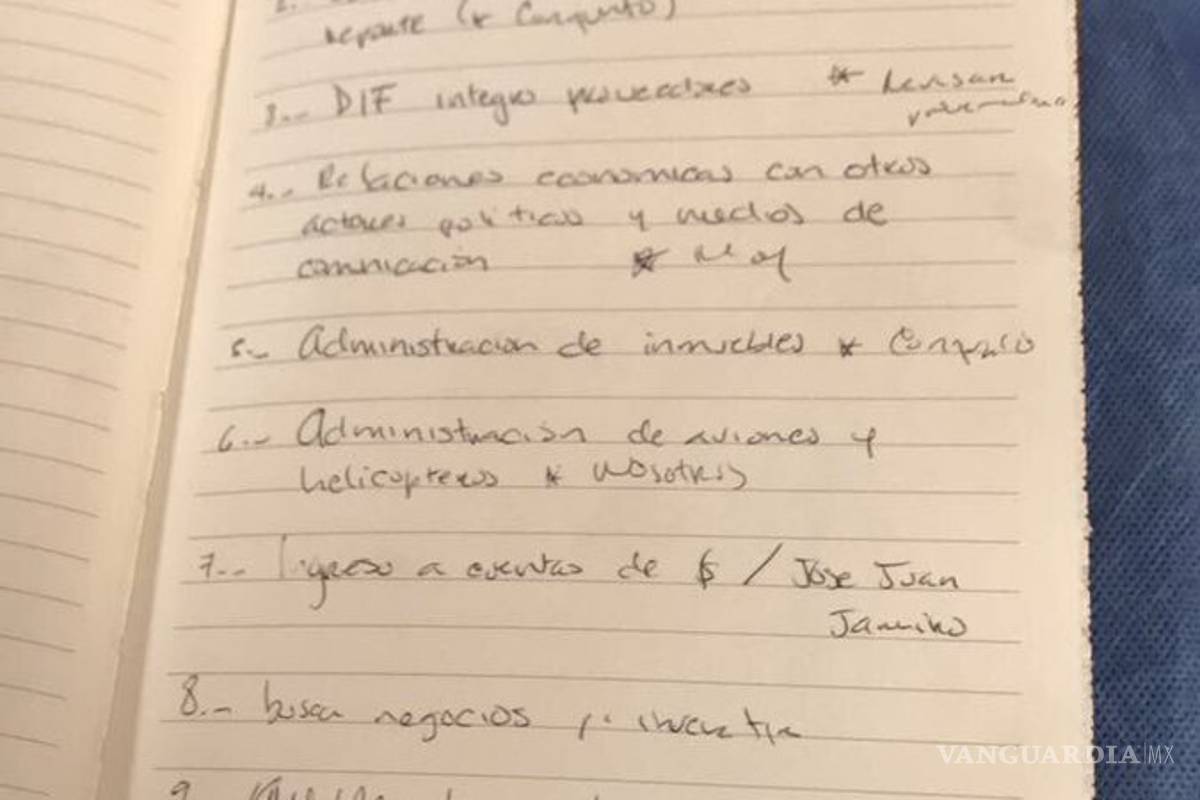 2.-
deporte (* Conjunto)
3.- DIF integro proveedores * Revisan
4.- Relaciones economicas con otros
actores politicos y medios de
comnicación *
5.- Administracion de inmuebles * Conjunto
6.- Administración de aviones y
helicopteros * Nosotros
7.- Ingreso a cuentas de $ / Jose Juan
Janeiro
8.- buscar negocios p' invertir
9.-
VANGUARDIA|MX